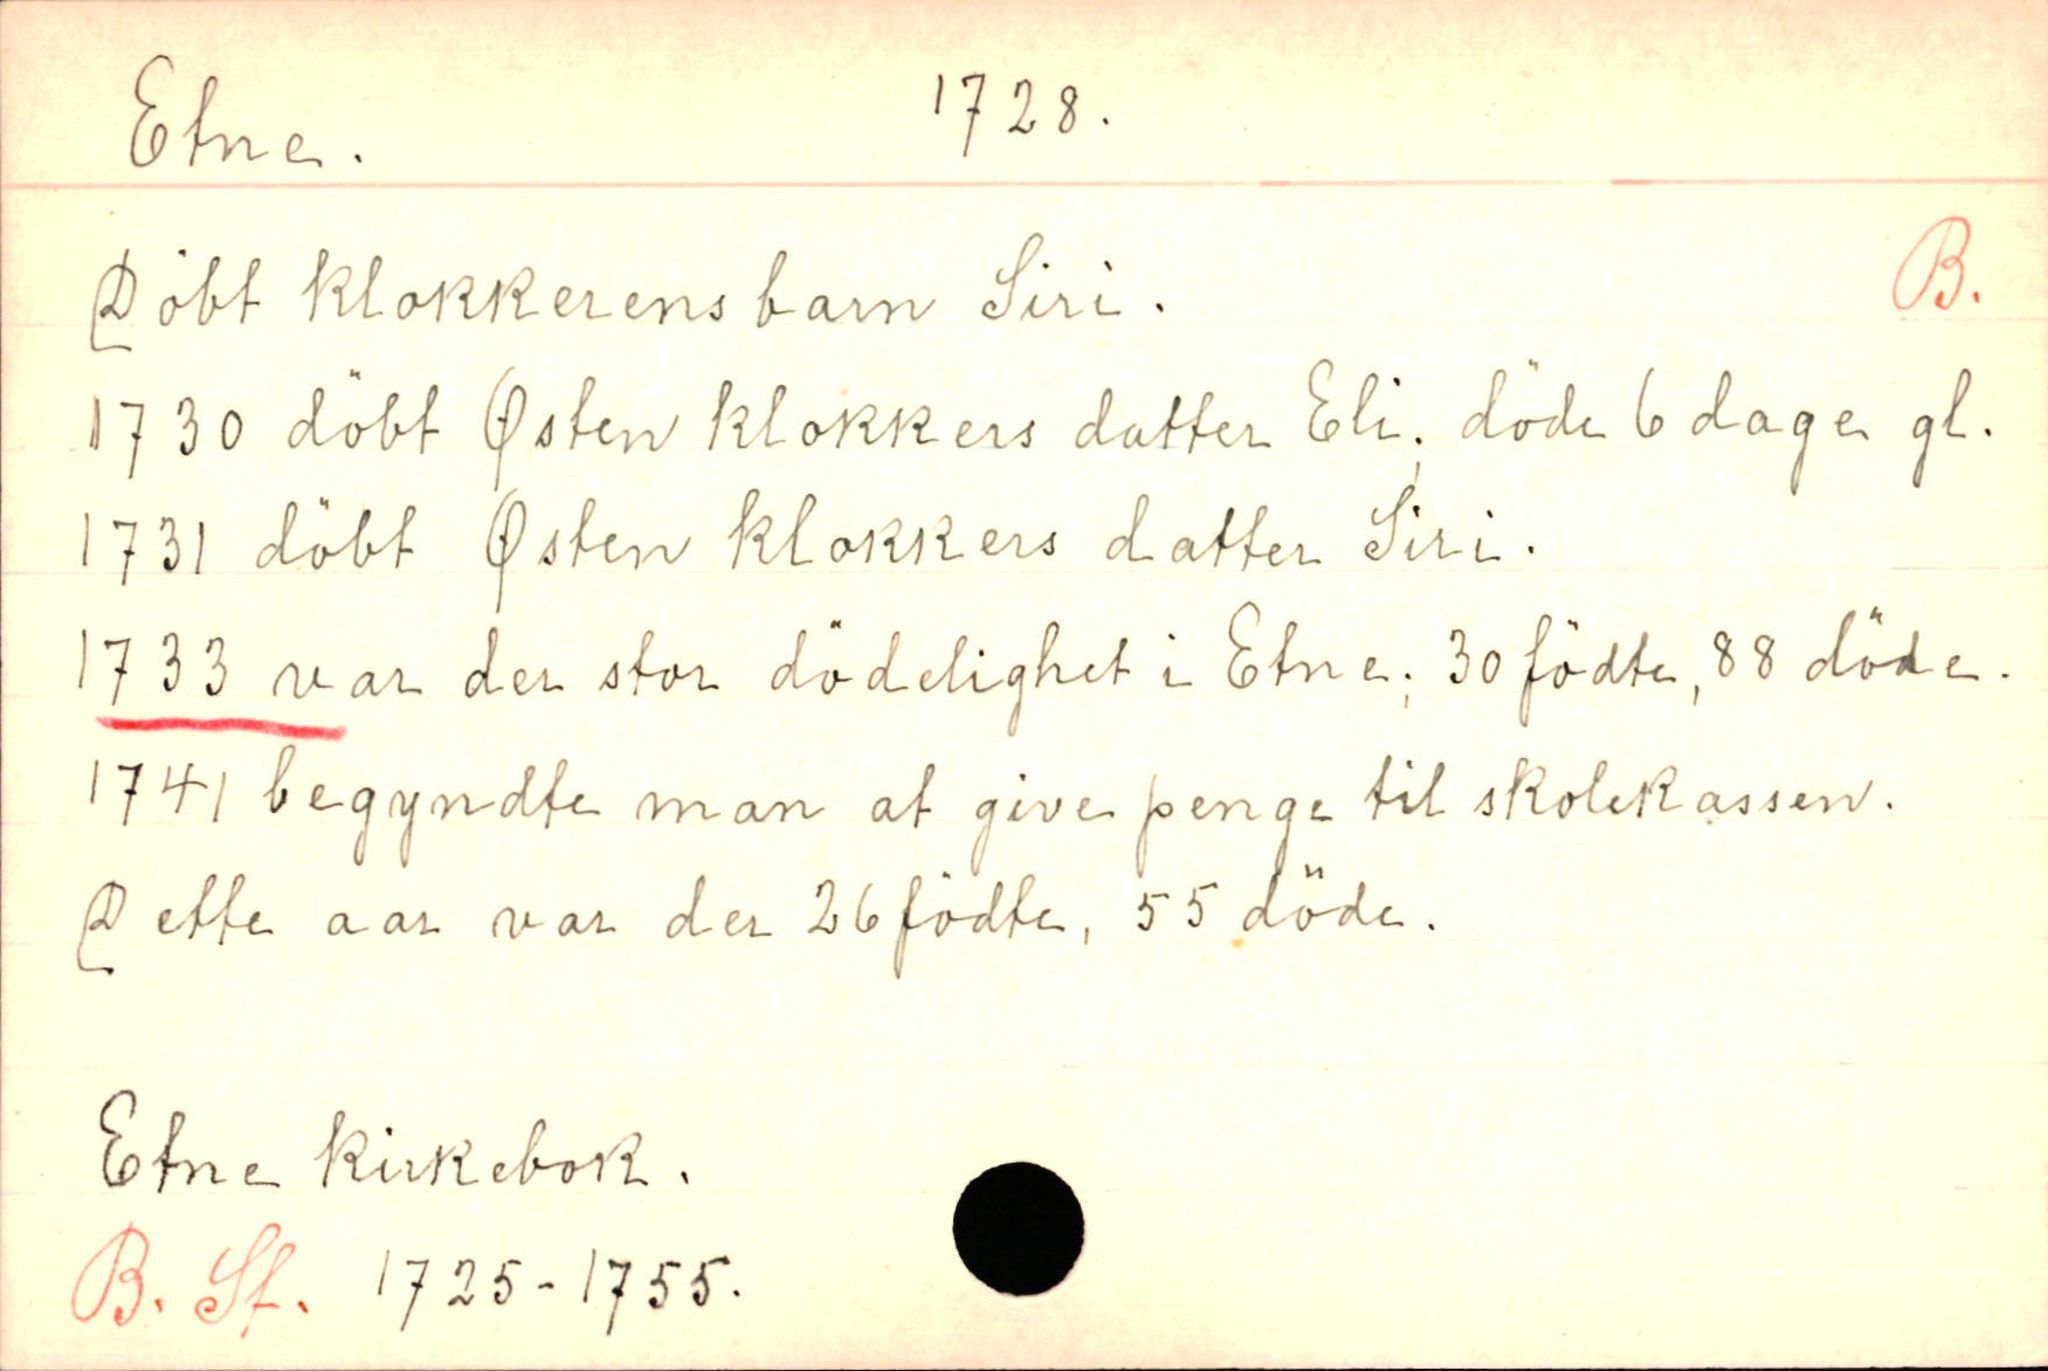 Etne. 1728.
B.
Döbt klokkerens barn Siri.
1730 döbt Østen klokkers datter Eli; döde 6 dage gl.
1731 döbt Østen klokkers datter Siri.
1733 var der stor dödelighet i Etne; 30 födte, 88 döde.
1741 begyndte man at give penge til skolekassen.
Dette aar var der 26 födte, 55 döde.
Etne kirkebok.
B. St. 1725-1755.